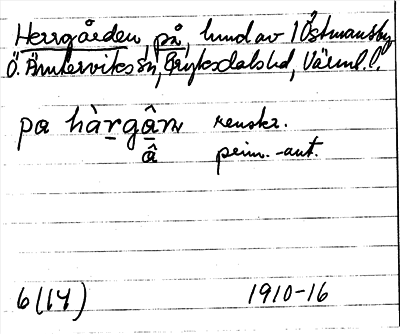 Herrgården, på, lund av 1 Östmansby
Ö. Ämterviks sn, Fryksdals hd, Värml. l.
pa hàrgâɳ renskr.
â prim.-ant.
6(14) 1910-16